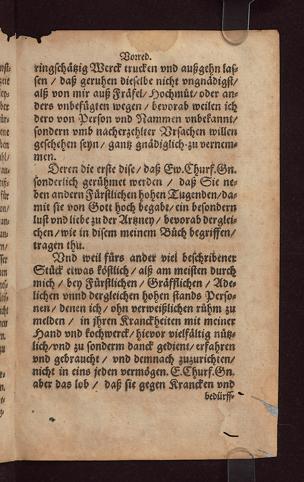 Vorred.
ringschätzig Werck trucken vnd außgehn las-
sen / daß geruhen dieselbe nicht vngnädigst/
alß von mir auß Fräfel/ Hochmüt/ oder an-
ders vnbefügten wegen / bevorab weilen ich
dero von Person vnd Nammen vnbekannt/
sondern vmb nacherzehlter Vrsachen willen
geschehen seyn / gantz gnädiglich zu vernem-
men.
Deren die erste dise/ daß Ew. Churf. Gn.
sonderlich gerühmet werden / daß Sie ne-
ben andern Fürstlichen hohen Tugenden/da-
mit sie von Gott hoch begabt/ ein besondern
lust vnd liebe zu der Artzney / bevorab derglei-
chen / wie in disem meinem Büch begriffen/
tragen thu.
Vnd weil fürs ander viel beschribener
Stück etwas köstlich/ alß am meisten durch
mich / bey Fürstlichen / Gräfflichen / Ade-
lichen vnnd dergleichen hohen stands Perso-
nen / denen ich / ohn verweißlichen rühm zu
melden / in jhren Kranckheiten mit meiner
Hand vnd kochwerck/ hievor vielfältig nütz-
lich/vnd zu sonderm danck gedient/ erfahren
vnd gebraucht / vnd demnach zuzurichten/
nicht in eins jeden vermögen. E. Churf. Gn.
aber das lob / daß sie gegen Krancken vnd
bedürff-